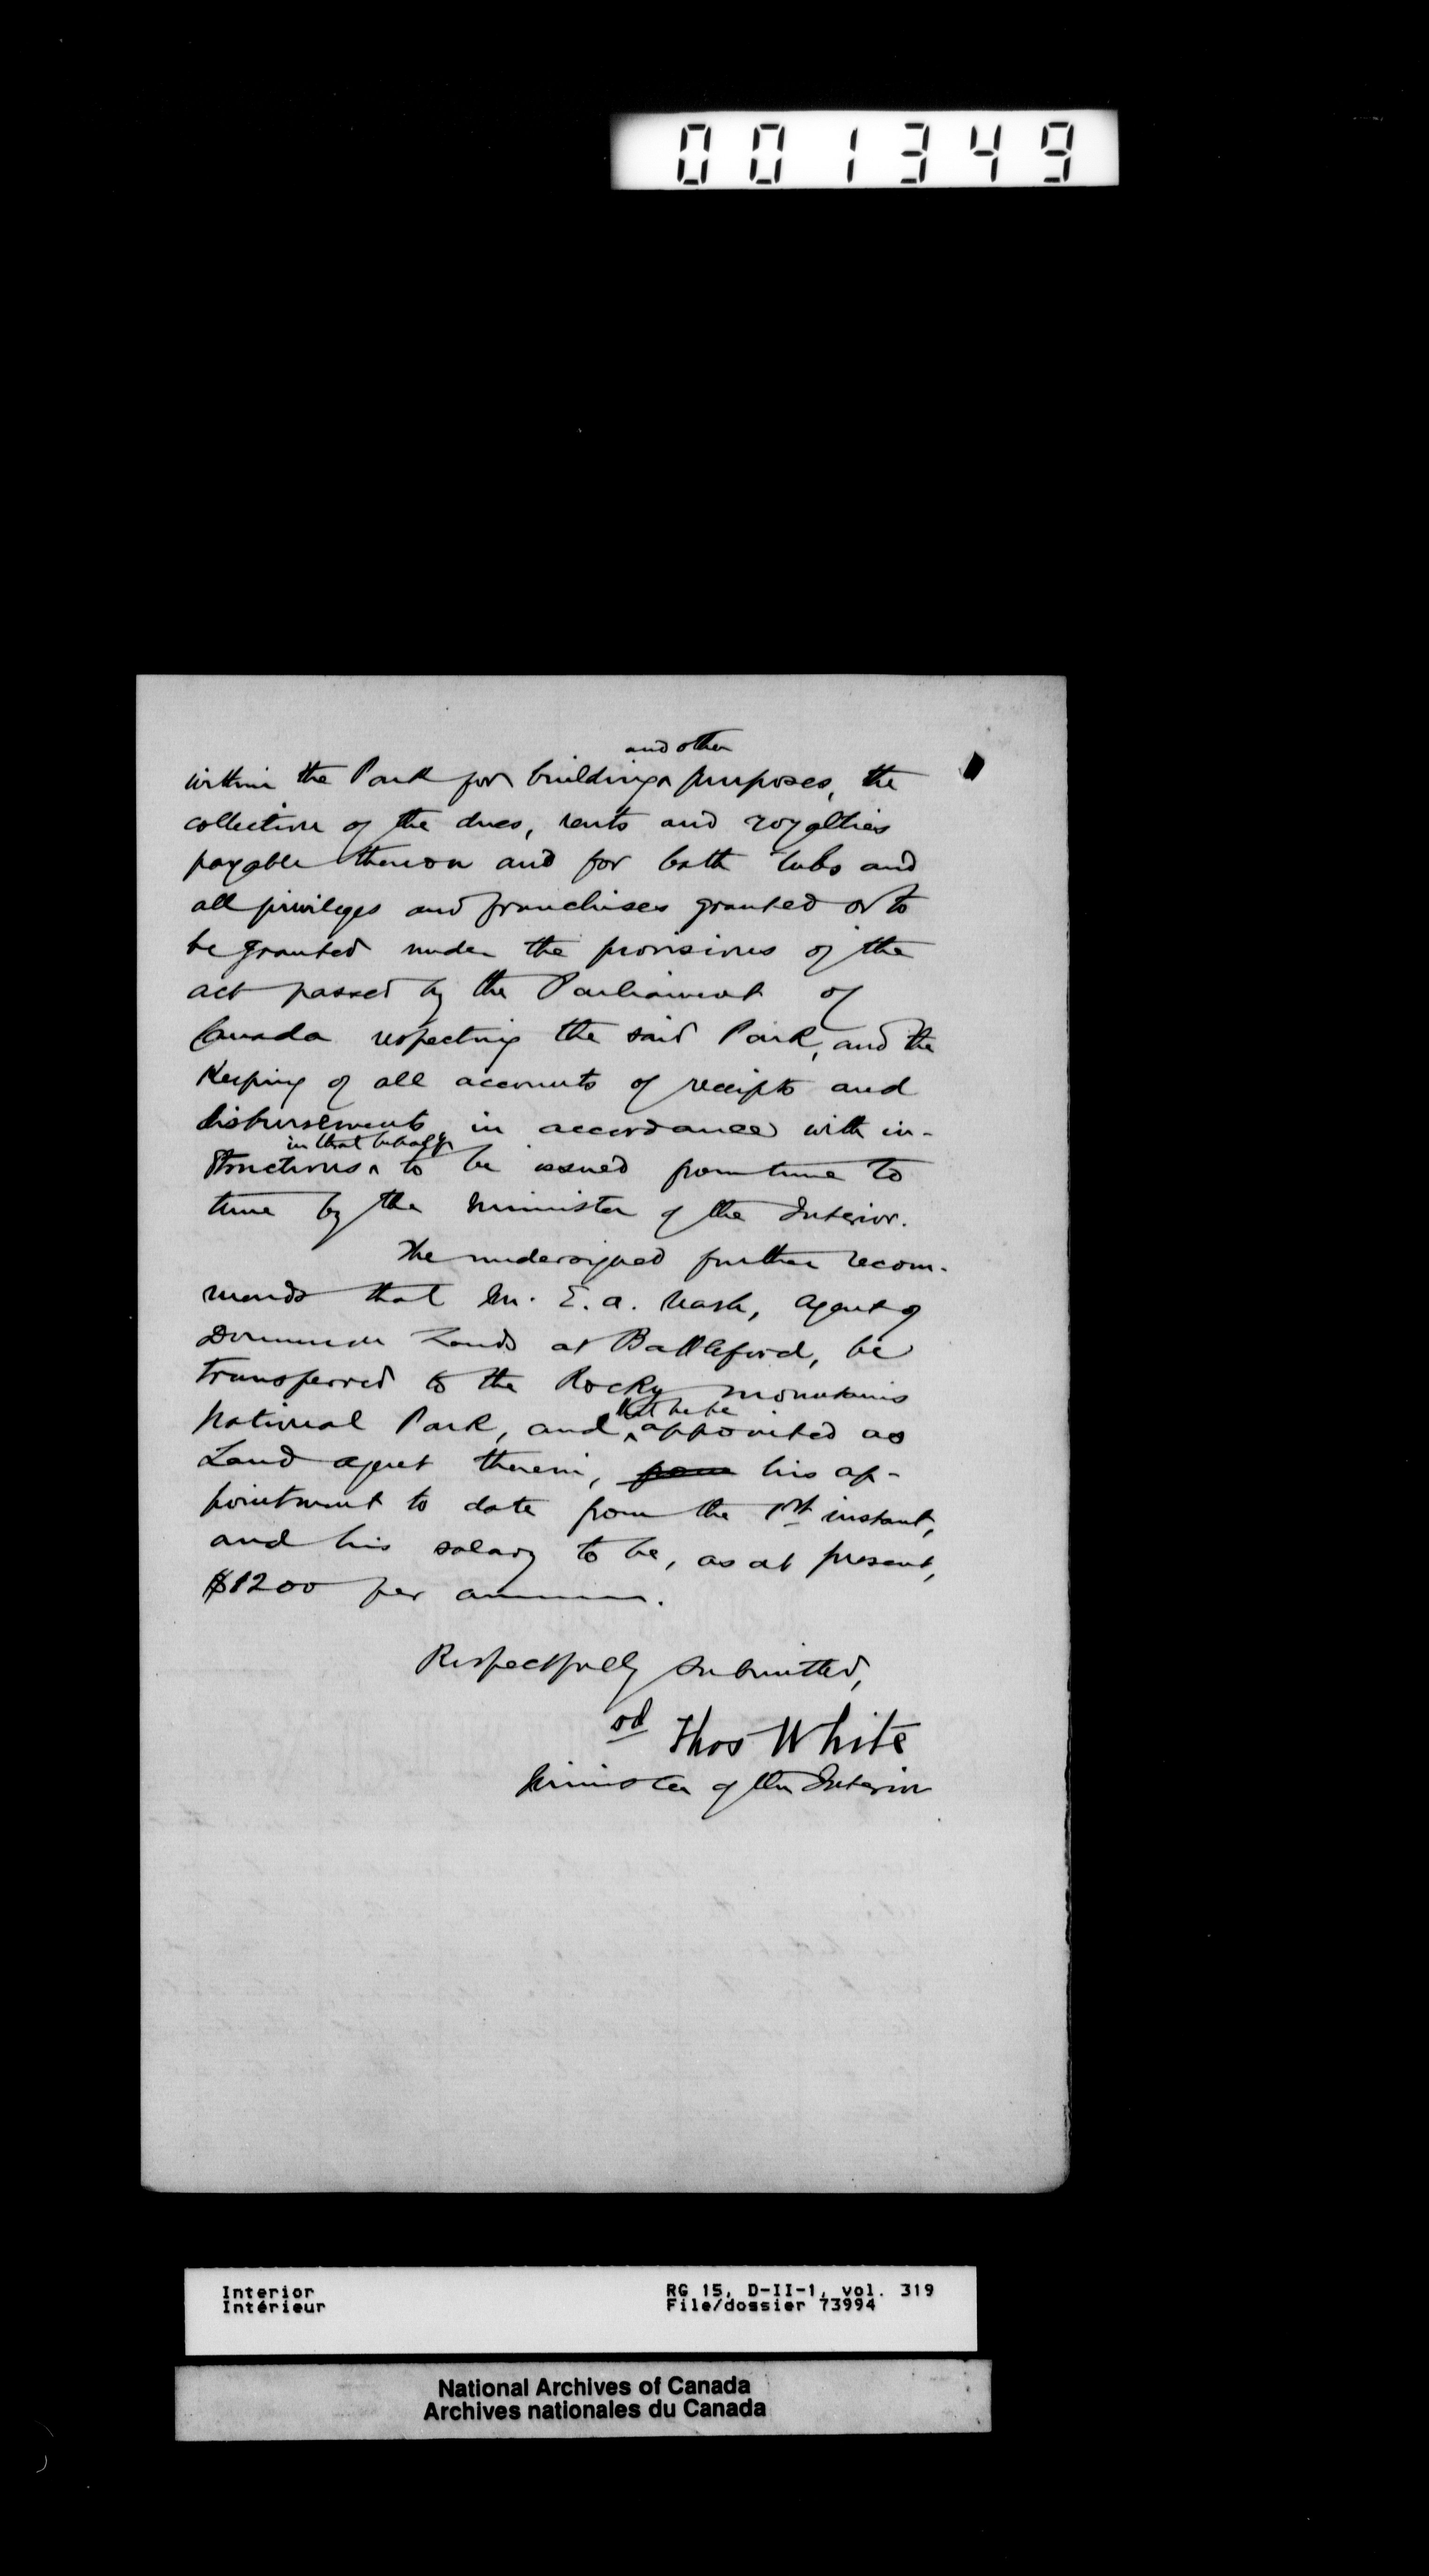 001349
and other
within the Park for building ^ purposes, the
collection of the dues, rents and royalties
payable thereon and for bath tubs and
all privileges and franchises granted or to
be granted under the provisions of the
act passed by the Parliament of
Canada respecting the said Park, and the
keeping of all accounts of receipts and
disbursements, in accordance with in-
in that behalf
structions ^ to be issued from time to
time by the Minister of the Interior.
The undersigned further recom-
mends that Mr. E. A. Nash, Agent of
Dominion Lands at Battleford, be
transferred to the Rocky Mountains
that he be
National Park, and ^ appointed as
Land Agent therein, from his ap-
pointment to date from the 1st instant,
and his salary to be, as at present,
$1200 per annum.
Respectfully submitted,
sd Thos White
Minister of the Interior
Interior
Intérieur
RG 15, D-II-1, vol. 319
File/dossier 73994
National Archives of Canada
Archives nationales du Canada